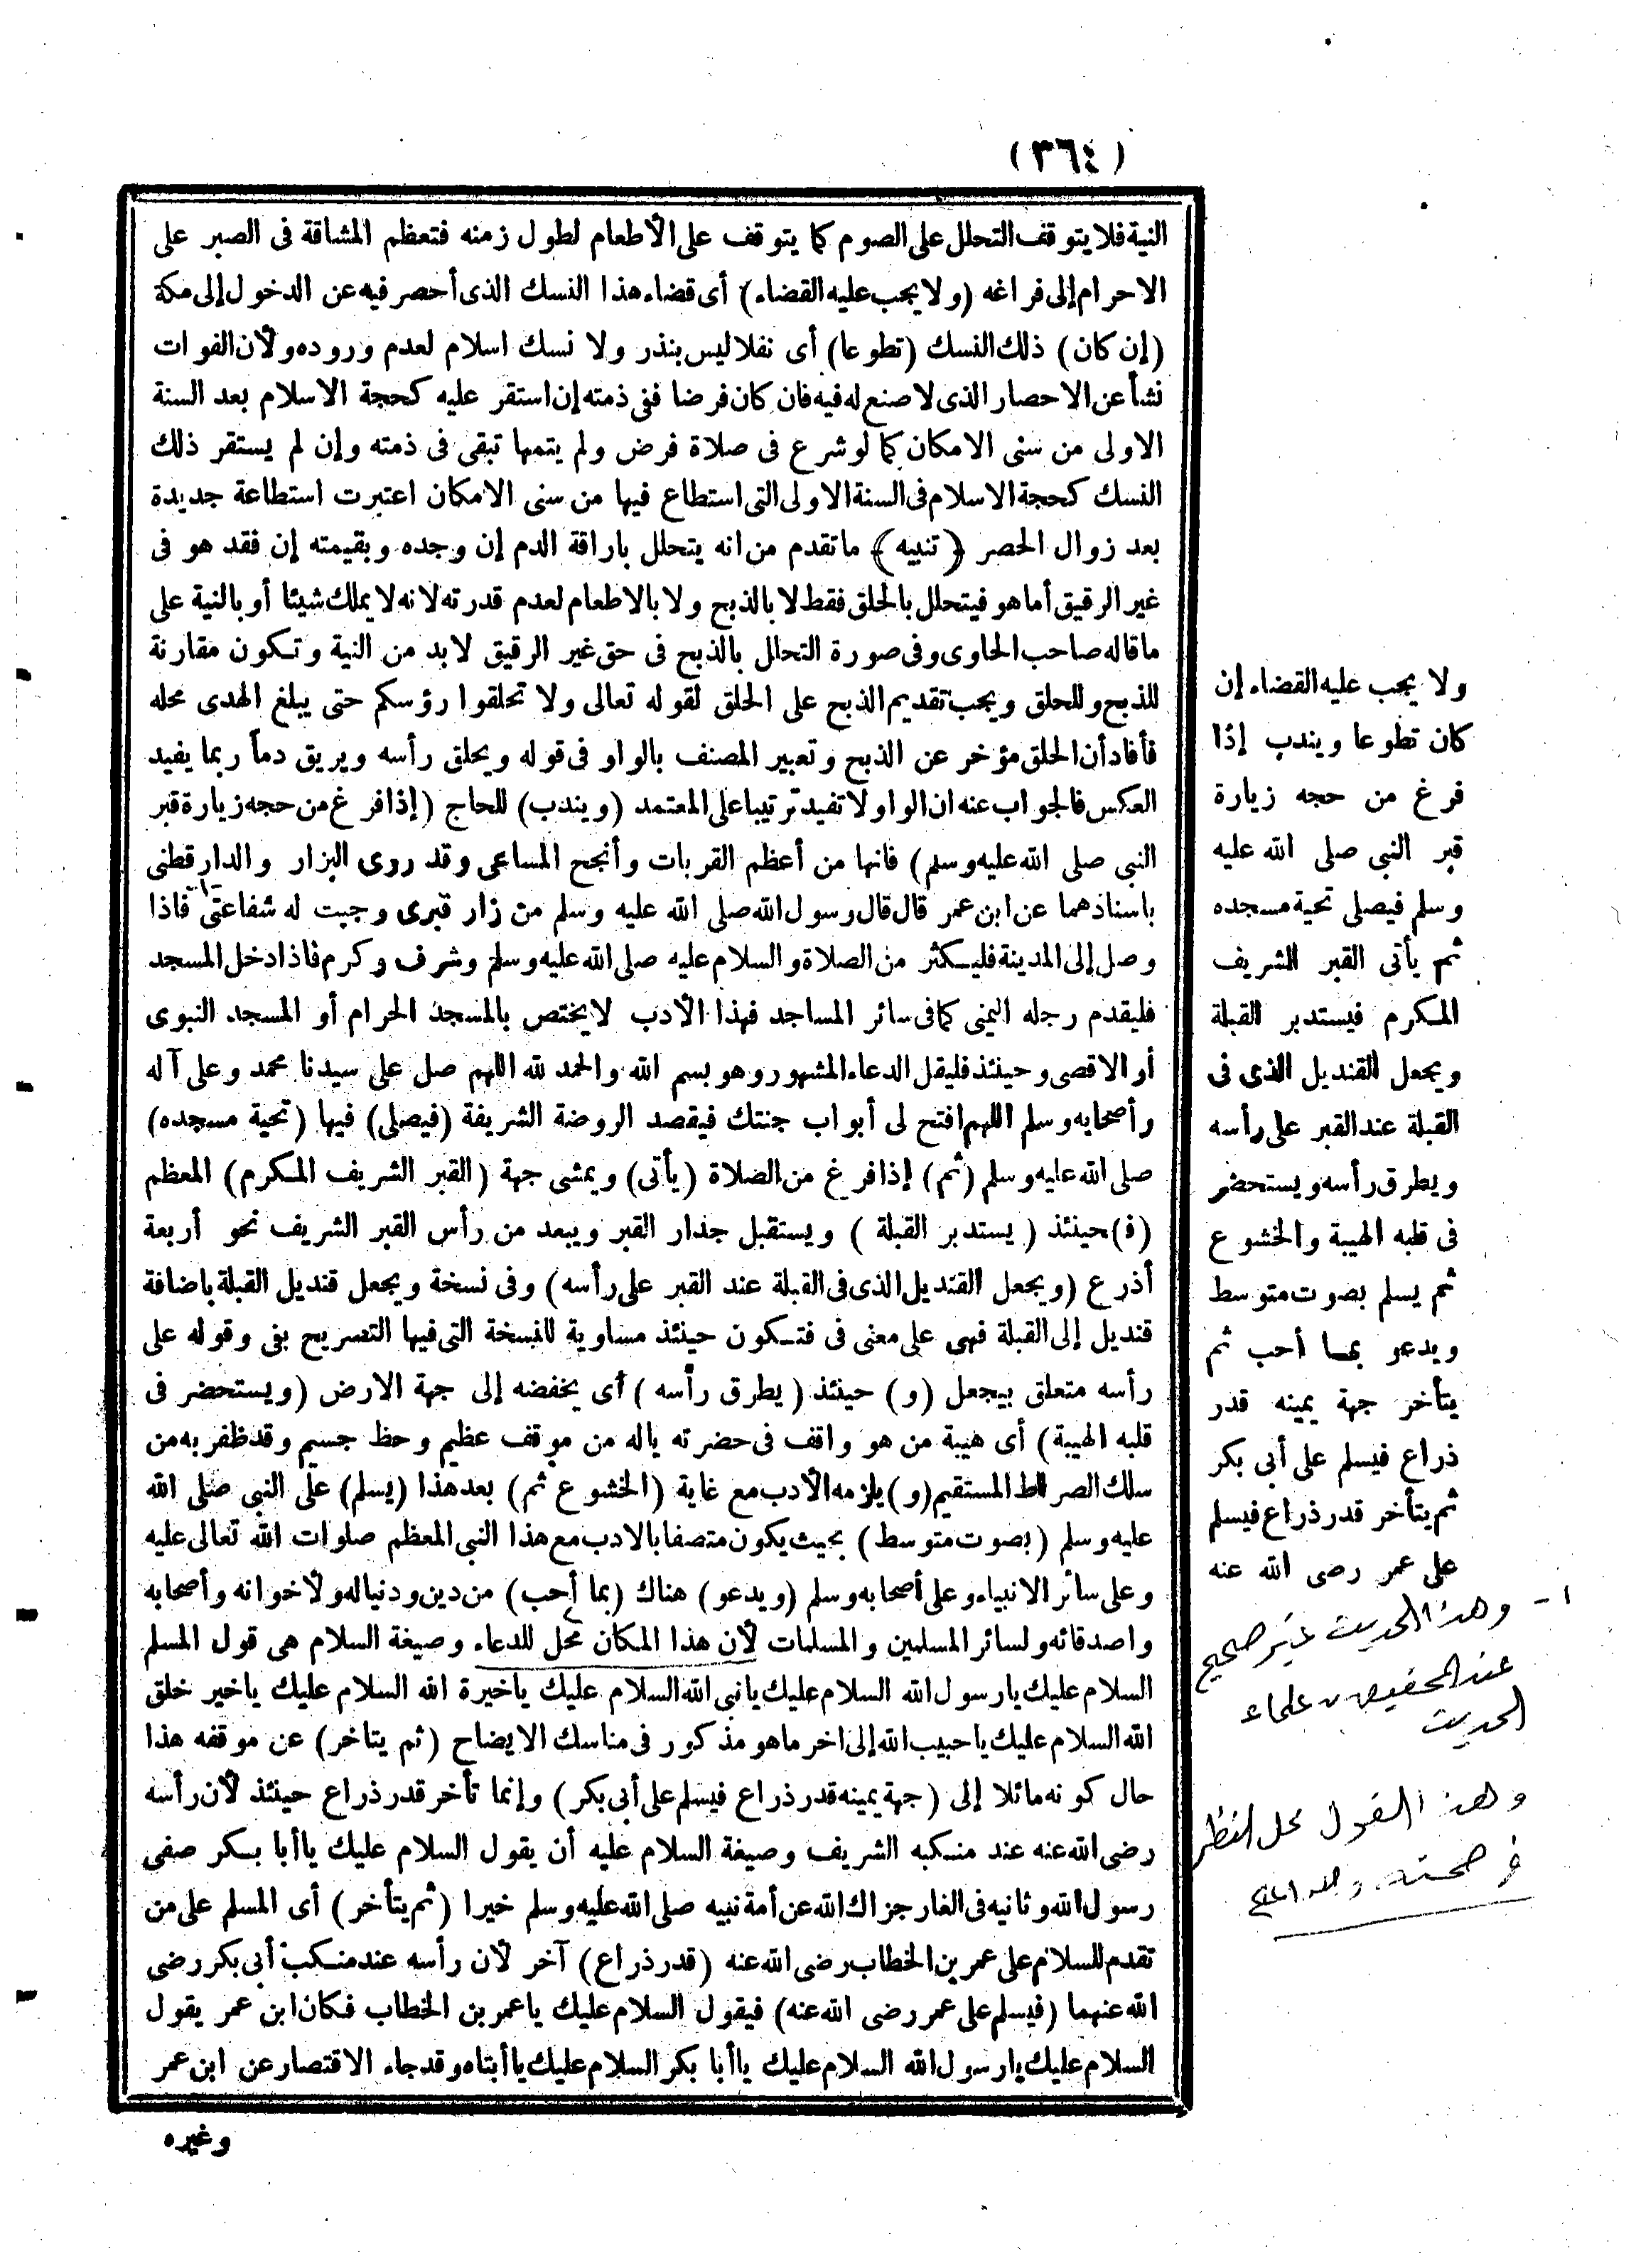 (٣٦٤)
النية فلا يتوقف التحلل على الصوم كما يتوقف على الأطعام لطول زمنه فتعظم المشاقة فى الصبر على
الاحرام إلى فراغه (ولا يجب عليه القضاء) أى قضاء هذا النسك الذى أحصر فيه عن الدخول إلى مكة
(إن كان) ذلك النسك (تطوعا) أى نفلا ليس بنذر ولا نسك اسلام لعدم وروده ولأن الفوات
نشأ عن الاحصار الذى لا صنع له فيه فان كان فرضا ففى ذمته إن استقر عليه كحجة الاسلام بعد السنة
الاولى من سنى الامكان كما لو شرع فى صلاة فرض ولم يتمها تبقى فى ذمته وإن لم يستقر ذلك
النسك كحجة الاسلام فى السنة الاولى التى استطاع فيها من سنى الامكان اعتبرت استطاعة جديدة
بعد زوال الحصر ﴿تنبيه﴾ ما تقدم من انه يتحلل باراقة الدم إن وجده وبقيمته إن فقد هو فى
غير الرقيق أما هو فيتحلل بالحلق فقط لا بالذبح ولا بالاطعام لعدم قدرته لانه لا يملك شيئا أو بالنية على
ما قاله صاحب الحاوى وفى صورة التحلل بالذبح فى حق غير الرقيق لا بد من النية وتكون مقارنة
للذبح وللحلق ويجب تقديم الذبح على الحلق لقوله تعالى ولا تحلقوا رؤسكم حتى يبلغ الهدى محله
فأفاد أن الحلق مؤخر عن الذبح وتعبير المصنف بالواو فى قوله ويحلق رأسه ويريق دماً ربما يفيد
العكس فالجواب عنه ان الواو لا تفيد ترتيبا على المعتمد (ويندب) للحاج (إذا فرغ من حجه زيارة قبر
النبى صلى الله عليه وسلم) فانها من أعظم القربات وأنجح المساعى وقد روى البزار والدارقطنى
باسنادهما عن ابن عمر قال قال رسول الله صلى الله عليه وسلم من زار قبرى وجبت له شفاعتى فاذا
وصل إلى المدينة فليكثر من الصلاة والسلام عليه صلى الله عليه وسلم وشرف وكرم فاذا دخل المسجد
فليقدم رجله اليمنى كما فى سائر المساجد فهذا الأدب لا يختص بالمسجد الحرام أو المسجد النبوى
أو الاقصى وحينئذ فليقل الدعاء المشهور وهو بسم الله والحمد لله اللهم صل على سيدنا محمد وعلى آله
وأصحابه وسلم اللهم افتح لى أبواب جنتك فيقصد الروضة الشريفة (فيصلى) فيها (تحية مسجده)
صلى الله عليه وسلم (ثم) إذا فرغ من الصلاة (يأتى) ويمشى جهة (القبر الشريف المكرم) المعظم
(ف) حينئذ (يستدبر القبلة) ويستقبل جدار القبر ويبعد من رأس القبر الشريف نحو أربعة
أذرع (ويجعل القنديل الذى فى القبلة عند القبر على رأسه) وفى نسخة ويجعل قنديل القبلة باضافة
قنديل إلى القبلة فهى على معنى فى فتكون حينئذ مساوية للنسخة التى فيها التصريح بفى وقوله على
رأسه متعلق بيجعل (و) حينئذ (يطرق رأسه) أى يخفضه إلى جهة الارض (ويستحضر فى
قلبه الهيبة) أى هيبة من هو واقف فى حضرته ياله من موقف عظيم وحظ جسيم وقد ظفر به من
سلك الصراط المستقيم (و) يلزمه الأدب مع غاية (الخشوع ثم) بعد هذا (يسلم) على النبى صلى الله
عليه وسلم (بصوت متوسط) بحيث يكون متصفا بالادب مع هذا النبى المعظم صلوات الله تعالى عليه
وعلى سائر الانبياء وعلى أصحابه وسلم (ويدعو) هناك (بما أحب) من دين ودنيا له ولأخوانه وأصحابه
واصدقائه ولسائر المسلمين والمسلمات لأن هذا المكان محل للدعاء وصيغة السلام هى قول المسلم
السلام عليك يا رسول الله السلام عليك يا نبى الله السلام عليك يا خيرة الله السلام عليك يا خير خلق
الله السلام عليك يا حبيب الله إلى اخر ما هو مذكور فى مناسك الايضاح (ثم يتاخر) عن موقفه هذا
حال كونه مائلا إلى (جهة يمينه قدر ذراع فيسلم على أبى بكر) وإنما تأخر قدر ذراع حينئذ لأن رأسه
رضى الله عنه عند منكبه الشريف وصيغة السلام عليه أن يقول السلام عليك يا أبا بكر صفى
رسول الله وثانيه فى الغار جزاك الله عن أمة نبيه صلى الله عليه وسلم خيرا (ثم يتأخر) أى المسلم على من
تقدم للسلام على عمر بن الخطاب رضى الله عنه (قدر ذراع) آخر لأن رأسه عند منكب أبى بكر رضى
الله عنهما (فيسلم على عمر رضى الله عنه) فيقول السلام عليك يا عمر بن الخطاب فكان ابن عمر يقول
السلام عليك يا رسول الله السلام عليك يا أبا بكر السلام عليك يا أبتاه وقد جاء الاقتصار عن ابن عمر
وغيره
ولا يجب عليه القضاء إن
كان تطوعا ويندب إذا
فرغ من حجه زيارة
قبر النبى صلى الله عليه
وسلم فيصلى تحية مسجده
ثم يأتى القبر الشريف
المكرم فيستدبر القبلة
ويجعل القنديل الذى فى
القبلة عند القبر على رأسه
ويطرق رأسه ويستحضر
فى قلبه الهيبة والخشوع
ثم يسلم بصوت متوسط
ويدعو بما أحب ثم
يتأخر جهة يمينه قدر
ذراع فيسلم على أبى بكر
ثم يتأخر قدر ذراع فيسلم
على عمر رضى الله عنه
١ - وهذا الحديث غير صحيح
عند المحققين علماء
الحديث
وهذا القول محل النظر
فى صحته والله اعلم